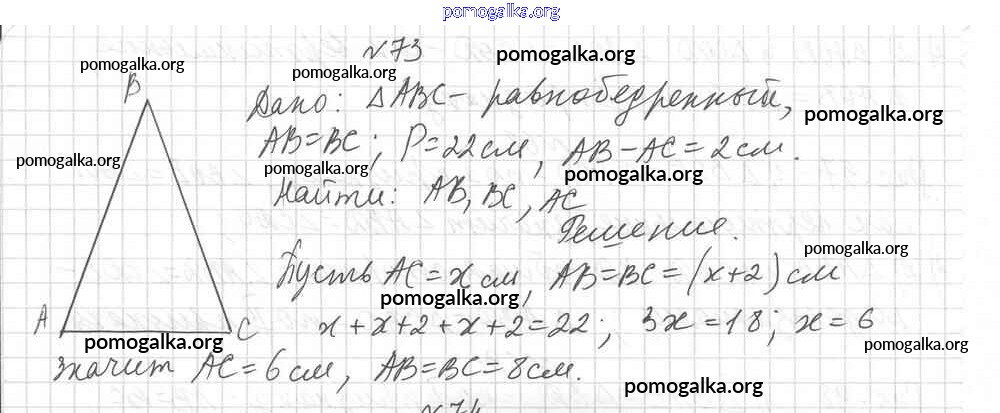 pomogalka.org
№73
pomogalka.org
pomogalka.org
pomogalka.org
B
Дано: △ABC – равнобедренный,
pomogalka.org
AB=BC; P=22см, AB–AC=2см.
pomogalka.org
pomogalka.org
pomogalka.org
Найти: AB, BC, AC
Решение.
pomogalka.org
Пусть AC=x см, AB=BC=(x+2) см
pomogalka.org
A
C
x+x+2+x+2=22; 3x=18; x=6
pomogalka.org
pomogalka.org
значит AC=6см, AB=BC=8см.
pomogalka.org
№74